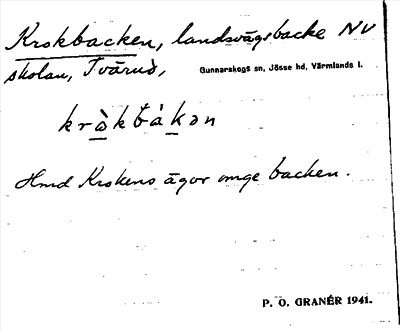 Krokbacken, landsvägsbacke NV
skolan, Tvärud, Gunnarskogs sn, Jösse hd, Värmlands l.
kràkbàkən
Hmd Krokens ägor omge backen.
P. O. GRANÉR 1941.